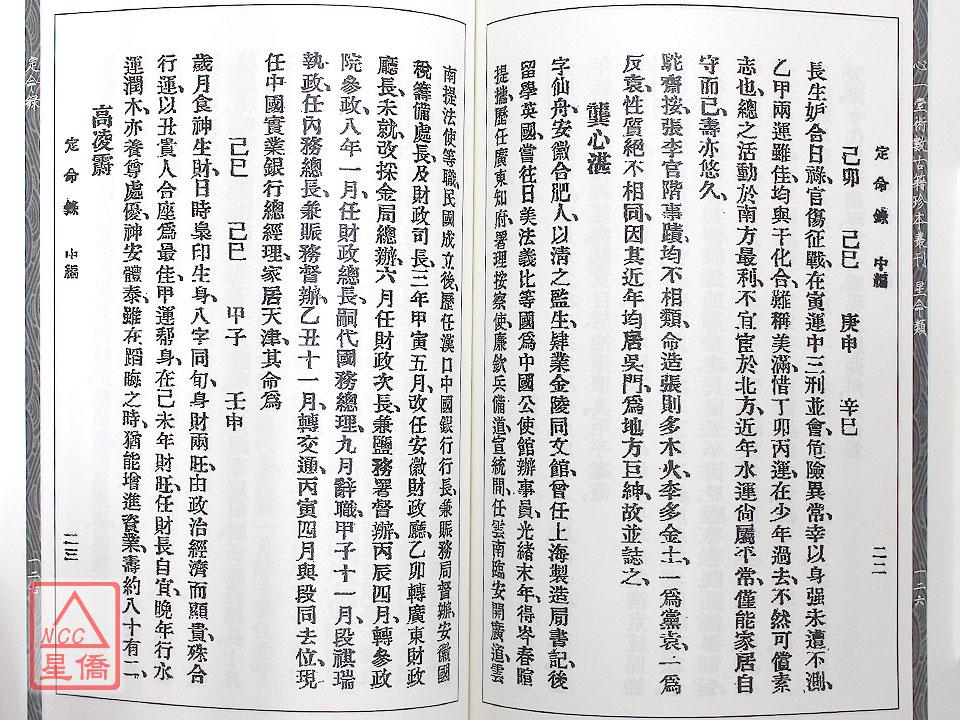 心一堂術數古籍珍本叢刊 星命類
二六
定命錄 中編
二二
己卯 己巳 庚申 辛巳
長生妒合日祿官傷征戰在寅運中三刑並會危險異常幸以身强未遭不測、
乙甲兩運雖佳均與干化合難稱美滿惜丁卯丙運在少年過去不然可償素
志也總之活動於南方最利不宜宦於北方近年水運尙屬平常僅能家居自
守而已壽亦悠久、
駝齋按張李官階事蹟均不相類命造張則多木火李多金土一爲黨袁一爲
反袁性質絕不相同因其近年均居吳門爲地方巨紳故並誌之、
龔心湛
字仙舟安徽合肥人以清之監生肄業金陵同文館曾任上海製造局書記後
留學英國嘗往日美法義比等國爲中國公使館辦事員光緒末年得岑春暄
提攜歷任廣東知府署理按察使廉欽兵備道宣統間任雲南臨安開廣道雲
南提法使等職民國成立後歷任漢口中國銀行行長兼賑務局督辦安徽國
稅籌備處長及財政司長三年甲寅五月改任安徽財政廳乙卯轉廣東財政
廳長未就改採金局總辦六月任財政次長兼鹽務署督辦丙辰四月轉參政
院參政八年一月任財政總長嗣代國務總理九月辭職甲子十一月段祺瑞
執政任內務總長兼賑務督辦乙丑十一月轉交通丙寅四月與段同去位現
任中國實業銀行總經理家居天津其命爲
己巳 己巳 甲子 壬申
歲月食神生財日時梟印生身八字同旬身財兩旺由政治經濟而顯貴殊合
行運以丑貴人合座爲最佳甲運幇身在己未年財旺任財長自寅晚年行水
運潤木亦養尊處優神安體泰雖在蹈晦之時猶能增進資業壽約八十有二、
高凌霨
定命錄 中編
二三
定命錄
二七
NCC
星僑